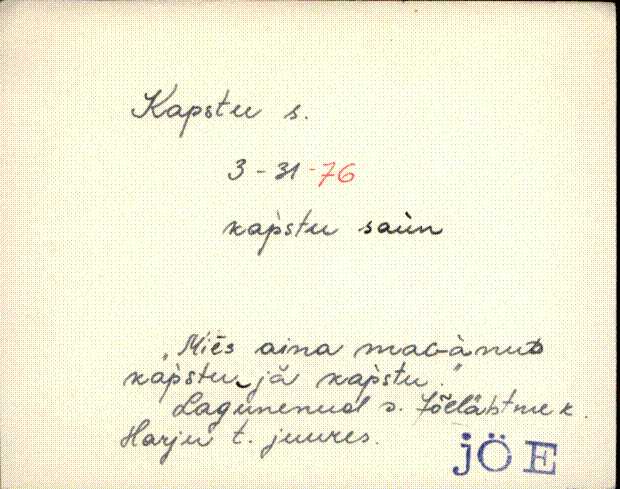 Kapstu s.
3-31-76
kap̀stu saùn
„Miẽs aina magànud
kap̀stu‿jä kap̀stu."
Lagunenud s. Jõelähtme k.
Harju t. juures.
JÖE